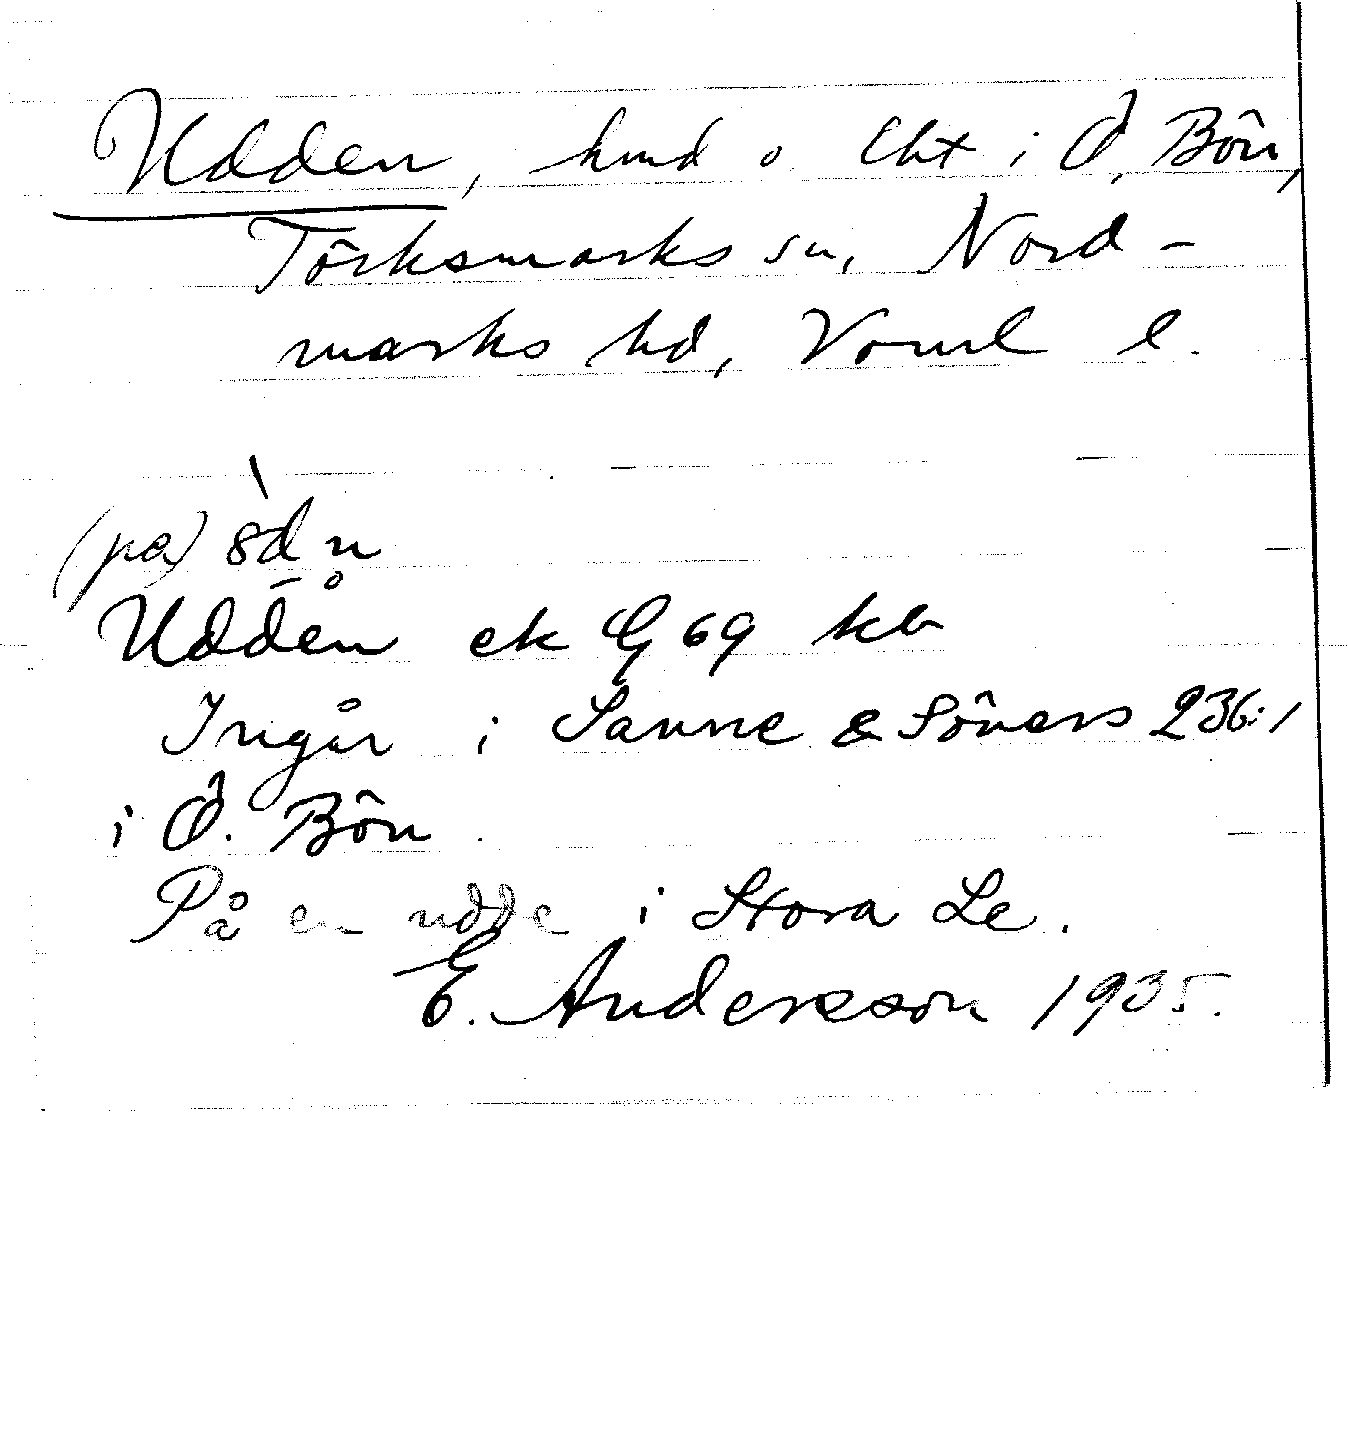 Udden, hmd o. lht i Ö. Bön,
Törksmarks sn, Nord-
marks hd, Vorml l.
(på) 8̀d̄n̥
Udden ek G 69 kb
Ingår i Sanne & Söners 236:1
i Ö. Bön.
På en udde i Stora Le.
E. Andersson 1935.